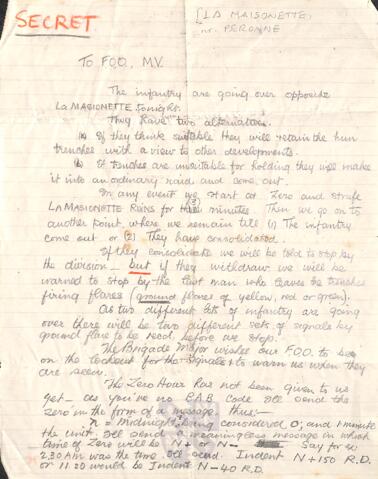 SECRET
[LA MAISONETTE,
nr. PERONNE
To FOO, M.V.
The infantry are going over opposite
LA MASIONETTE tonight.
They have two alternatives.
(a) If they think suitable they will retain the hun
trenches with a view to other developments.
(b) If trenches are unsuitable for holding they will make
it into an ordinary raid and come out.
In any event we start at Zero and strafe
LA MASIONETTE RUINS for three (3) minutes. Then we go on to
another point, where we remain till (1) The infantry
come out or (2) They have consolidated.
If they consolidate we will be told to stop by
the division - but if they withdraw we will be
warned to stop by the last man who leaves the trenches
firing flares (ground flares of yellow, red or green).
As two different sets of infantry are going
over there will be two different sets of signals by
ground flare to be read before we stop.
The Brigade Major wishes our F.O.O. to be
on the lookout for the signals & to warn us when they
are seen.
The Zero Hour has not been given to us
yet - as you've no B.A.B Code I'll send the
zero in the form of a message thus:-
n = midnight, being considered 0; and 1 minute
the unit. I'll send a meaningless message in which
time of Zero will be N+ or N- Say for ex
2.30 AM was the time I'll send Indent N+150 R.D.
or 11.20 would be Indent N-40 R.D.